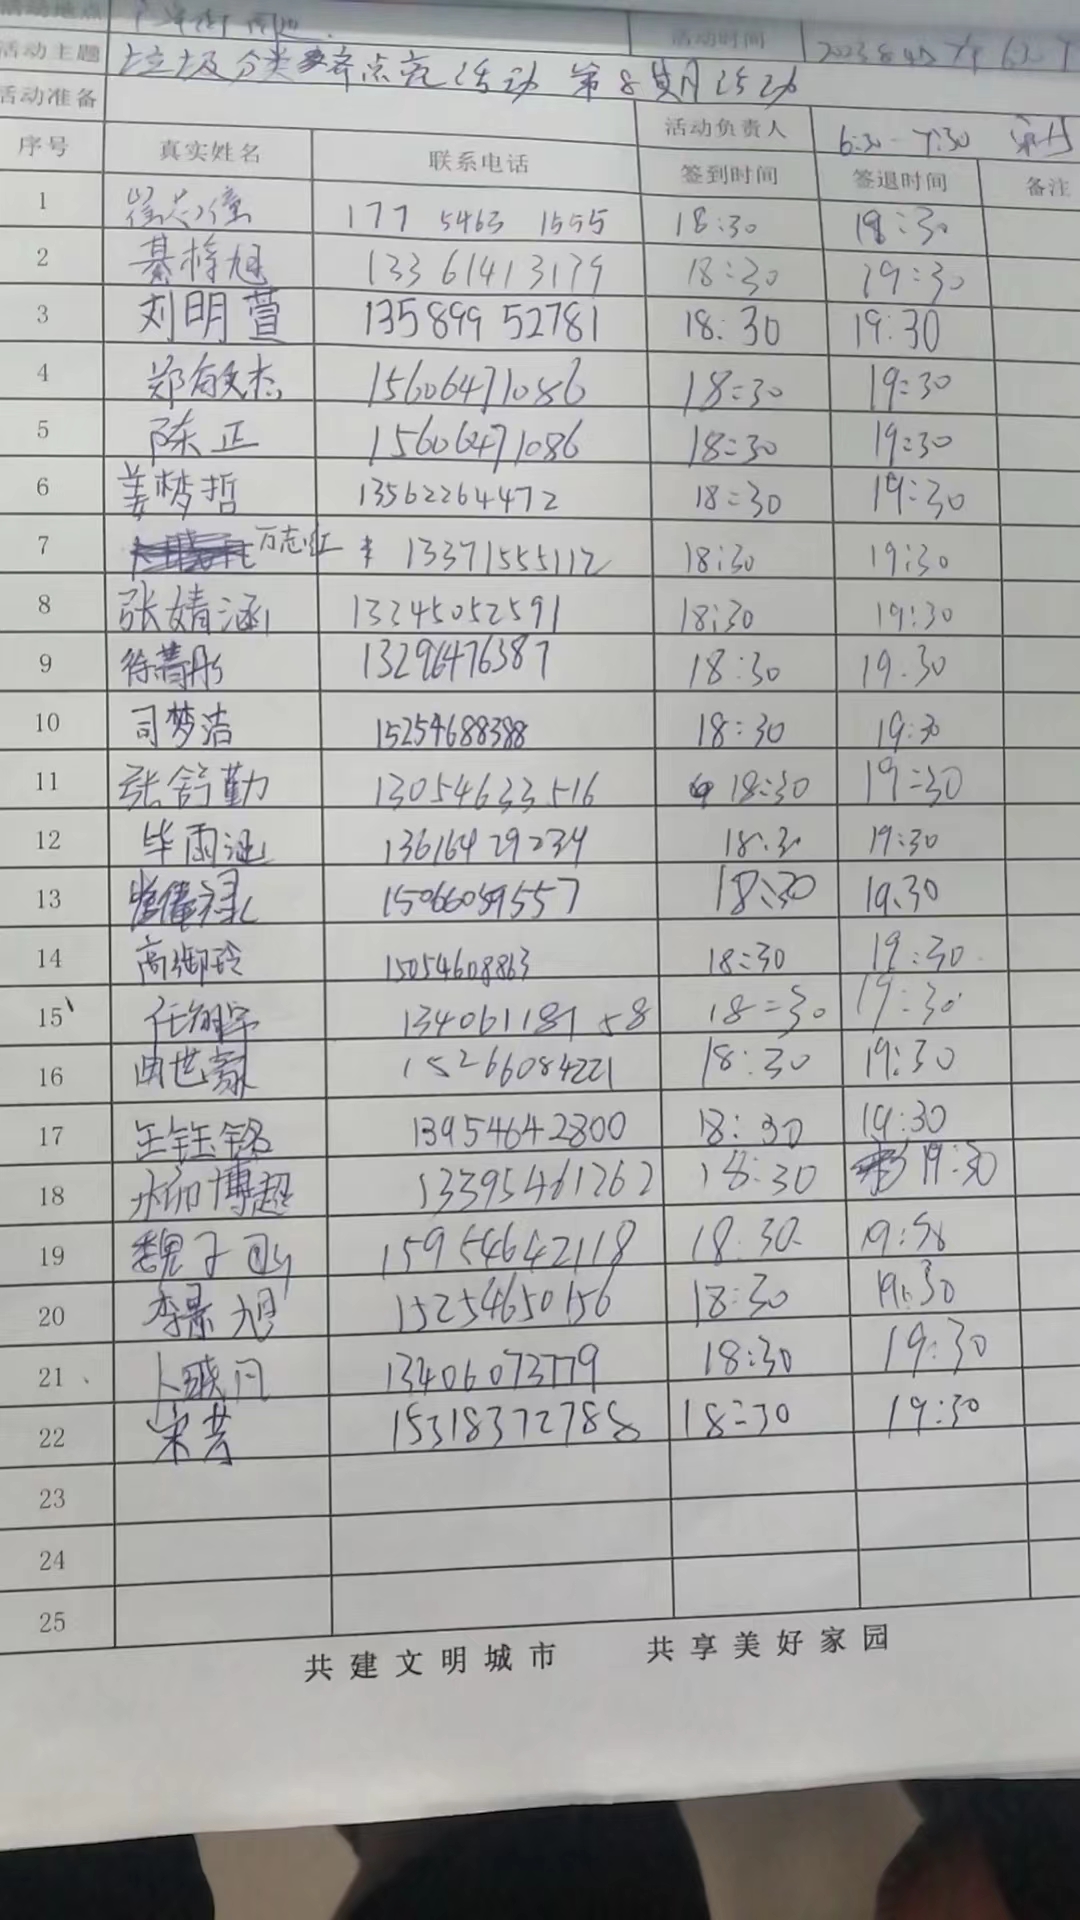 活动地点 周边
活动时间 2023
活动主题 垃圾分类 齐点亮活动 第8期活动
活动准备
活动负责人 6:30-7:30
序号 真实姓名 联系电话 签到时间 签退时间 备注
1 177 5463 1555 18:30 19:30
2 綦梓旭 13361413179 18:30 19:30
3 刘明萱 135899 52781 18:30 19:30
4 郑敏杰 15606471086 18:30 19:30
5 陈正 15606471086 18:30 19:30
6 姜梦哲 13562264472 18:30 19:30
7 万志红 13371555112 18:30 19:30
8 张婧涵 13245052591 18:30 19:30
9 徐菁彤 13296476387 18:30 19:30
10 司梦洁 15254688388 18:30 19:30
11 张舒勤 13054633516 18:30 19:30
12 毕雨涵 13616429234 18:30 19:30
13 15066059557 18:30 19:30
14 高御玲 15054608863 18:30 19:30
15 任翔宇 18:30 19:30
16 曲世豪 15266084221 18:30 19:30
17 王钰铭 13954642800 18:30 19:30
18 博超 13395461262 18:30 19:30
19 魏子 15954642118 18:30
20 李景旭 15254650156 18:30 19:30
21 13406073779 18:30 19:30
22 宋芸 15318372788 18:30 19:30
23
24
25
共建文明城市 共享美好家园